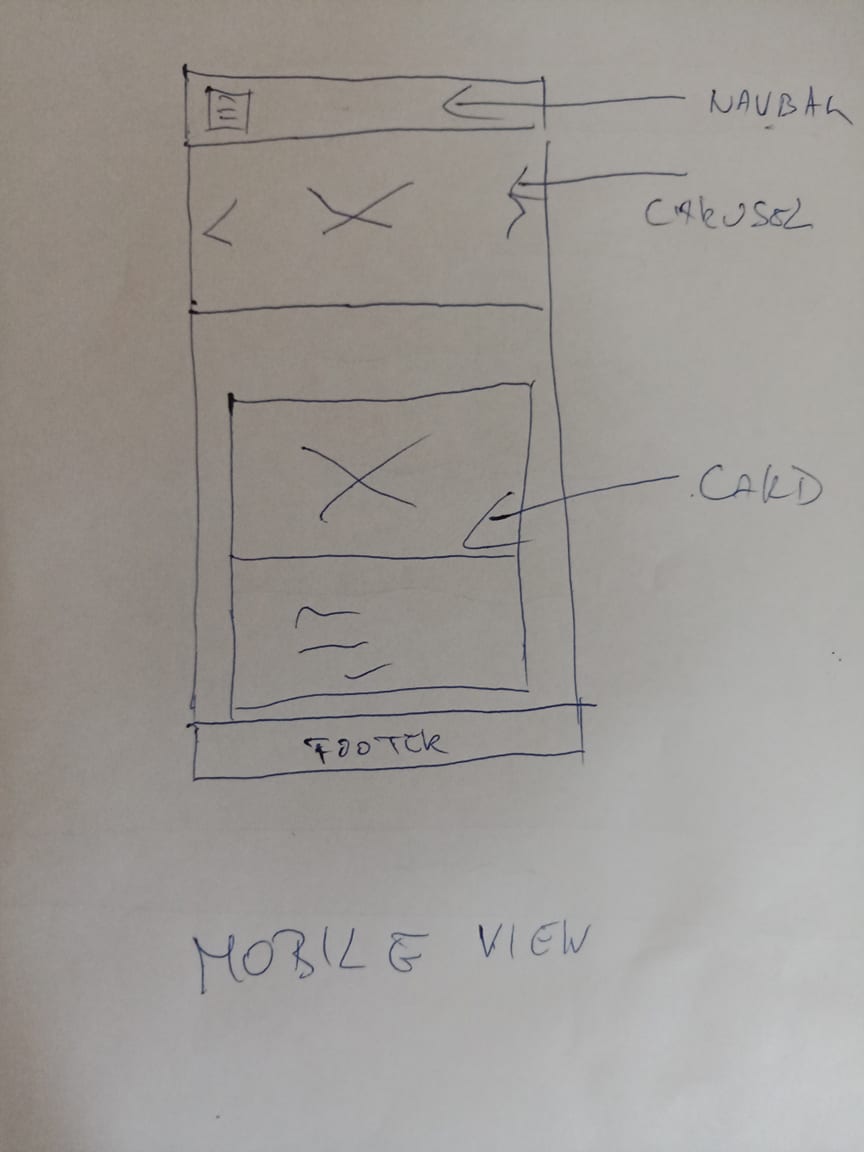 NAVBAR
CARUSEL
CARD
FOOTER
MOBILE VIEW